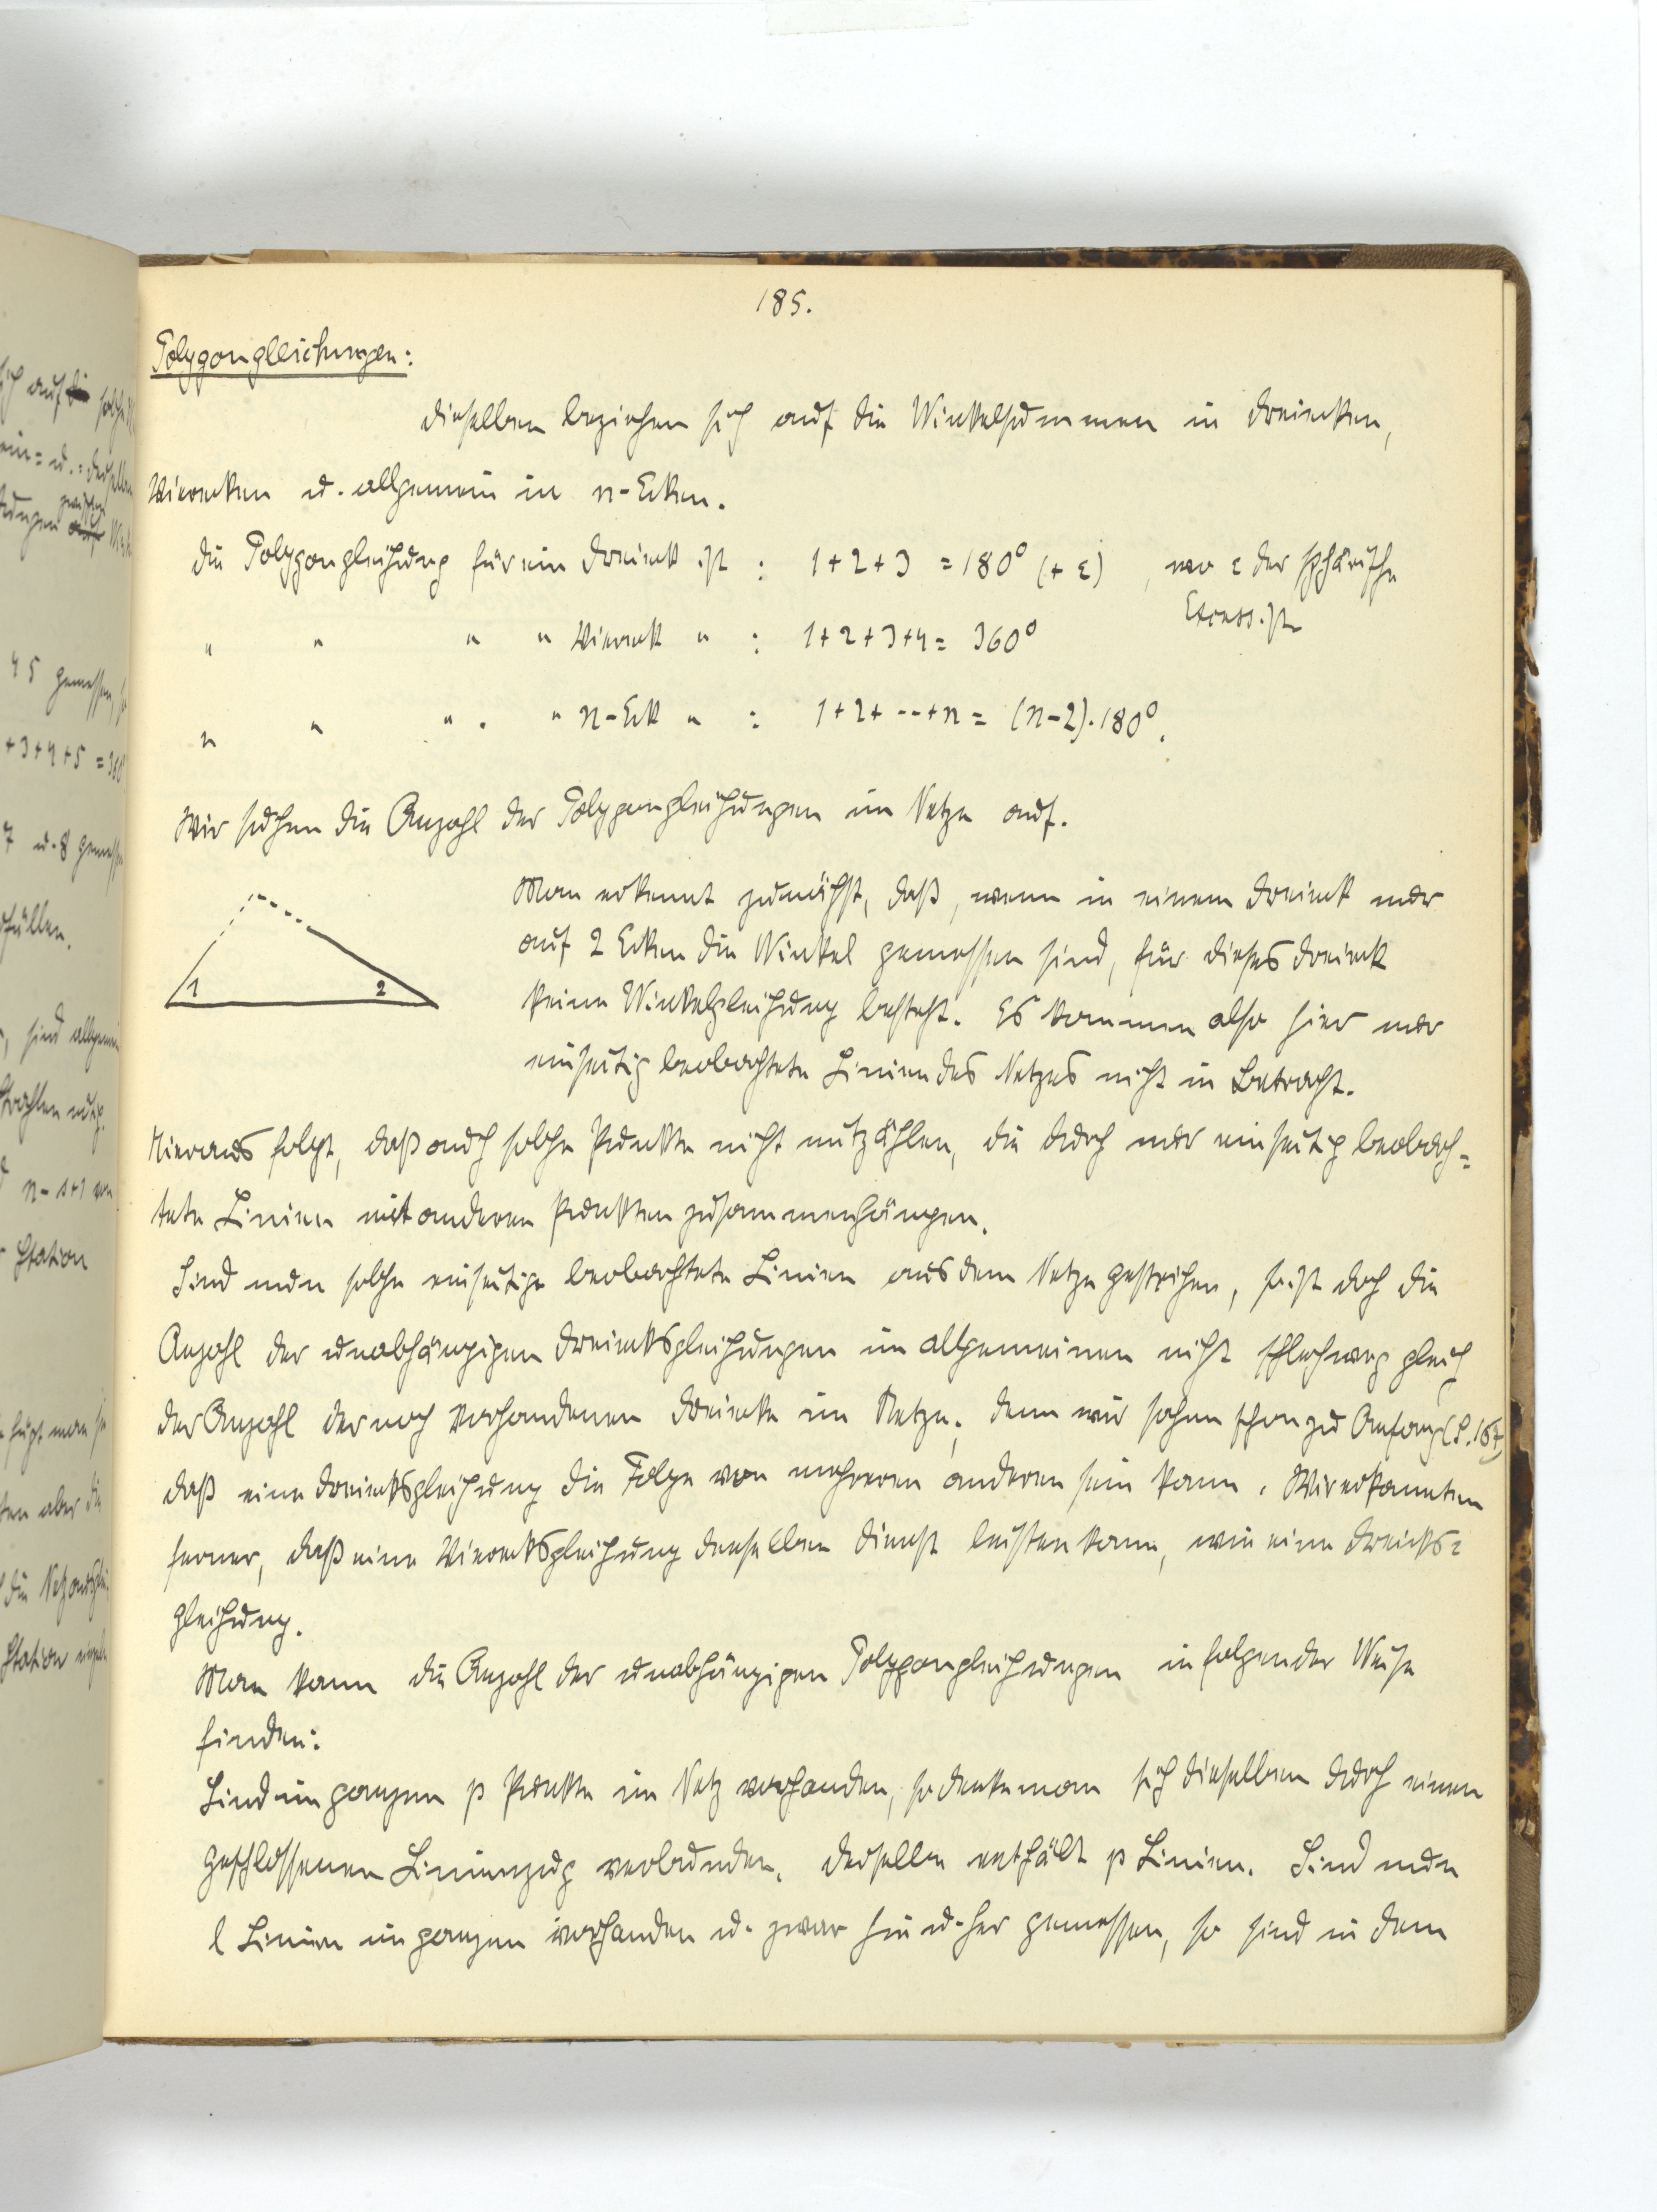 185.
Polygongleichungen:
Dieselben beziehen sich auf die Winkelsummen in Dreiecken,
Vierecken u. allgemein in n-Ecken.
Die Polygongleichung für ein Dreieck ist : 1+2+3 = 180° (+ ε) , wo ε der sphärische
Excess ist
" " " " Viereck " : 1+2+3+4 = 360°
" " " . " n-Eck " : 1+2+ --+n = (n-2).180°.
Wir suchen die Anzahl der Polygongleichungen im Netze auf.
Man erkennt zunächst, daß, wenn in einem Dreieck nur
auf 2 Ecken die Winkel gemessen sind, für dieses Dreieck
1 2
keine Winkelgleichung besteht. Es kommen also hier nur
einseitig beobachtete Linien des Netzes nicht in Betracht.
Hieraus folgt, daß auch solche Punkte nicht mitzählen, die durch nur einseitig beobach=
tete Linien mit anderen Punkten zusammenhängen.
Sind nun solche einseitige beobachtete Linien aus dem Netze gestrichen, so ist doch die
Anzahl der unabhängigen Dreiecksgleichungen im allgemeinen nicht schlechweg gleich
der Anzahl der noch vorhandenen Dreiecke im Netze; denn wir sahen schon zu Anfang (S. 167)
daß eine Dreiecksgleichung die Folge von mehreren anderen sein kann. Wir erkannten
ferner, daß eine Vierecksgleichung denselben Dienst leisten kann, wie eine Dreiecks=
gleichung.
Man kann die Anzahl der unabhängigen Polygongleichungen in folgender Weise
finden:
Sind im ganzen p Punkte im Netz vorhanden, so denke man sich dieselben durch einen
geschlossenen Linienzug verbunden. Derselbe enthält p Linien. Sind nun
l Linien im ganzen vorhanden u. zwar hin u. her gemessen, so sind in dem